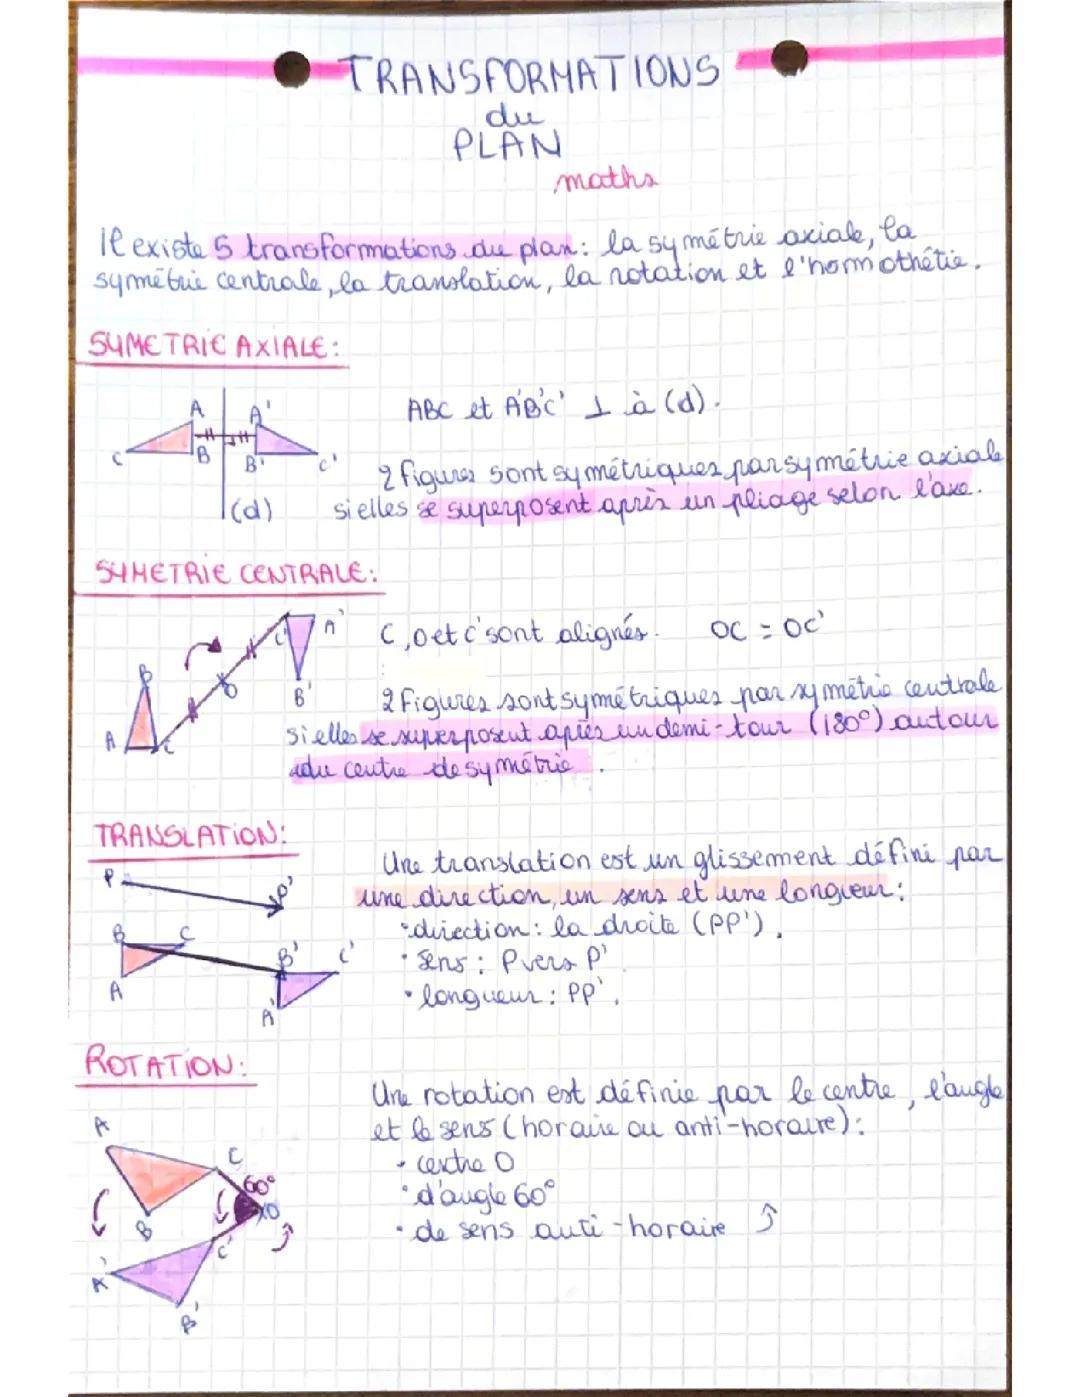 TRANSFORMATIONS
du
PLAN
maths
Il existe 5 transformations du plan: la symétrie axiale, la
symétrie centrale, la translation, la rotation et l'homothétie.
SYMETRIE AXIALE:
A A'
C B B' C'
(d)
ABC et A'B'C' ⊥ à (d).
2 figures sont symétriques par symétrie axiale
si elles se superposent après un pliage selon l'axe.
SYMETRIE CENTRALE:
C' A'
B'
O
B
A C
C, O et C' sont alignés. OC = OC'
2 figures sont symétriques par symétrie centrale
si elles se superposent après un demi-tour (180°) autour
du centre de symétrie.
TRANSLATION:
P P'
B C
A
B' C'
A'
Une translation est un glissement défini par
une direction, un sens et une longueur:
• direction: la droite (PP').
• Sens: P vers P'
• longueur: PP'.
ROTATION:
A
C
60°
O
B
C'
A'
B'
Une rotation est définie par le centre, l'angle
et le sens (horaire ou anti-horaire):
• centre O
• d'angle 60°
• de sens anti-horaire